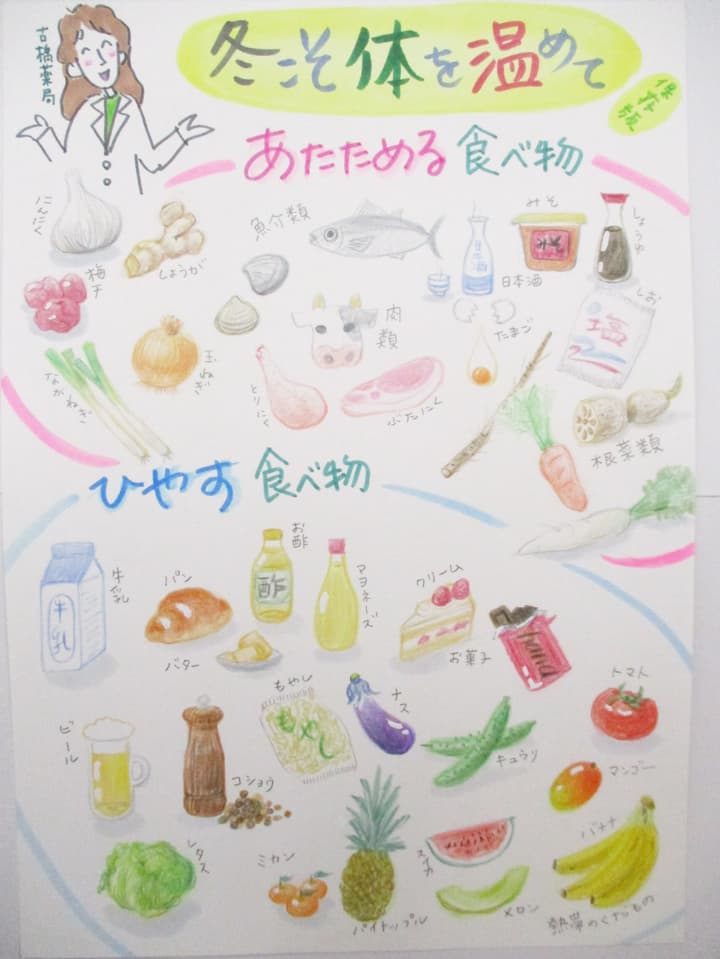 古橋薬局
冬こそ体を温めて
保存版
あたためる食べ物
にんにく
しょうが
梅干
魚介類
日本酒
日本酒
みそ
みそ
しょうゆ
ながねぎ
玉ねぎ
肉類
とりにく
ぶたにく
たまご
しお
塩
根菜類
ひやす食べ物
牛乳
牛乳
パン
バター
お酢
酢
マヨネーズ
クリーム
お菓子
hana
トマト
ビール
コショウ
もやし
もやし
ナス
キュウリ
マンゴー
レタス
ミカン
パイナップル
スイカ
メロン
バナナ
熱帯のくだもの